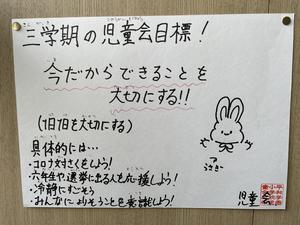 三学期の児童会目標!
今だからできることを
大切にする!!
(1日1日を大切にする)
具体的には…
・コロナ対さくをしよう!
・六年生や選挙に出る人も応援しよう!
・冷静にすごそう
・みんなによりそうことを意識しよう!
うさぎ
児童会